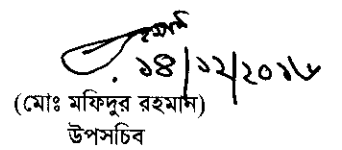 ১৪/১২/২০১৬
(মোঃ মফিদুর রহমান)
উপসচিব